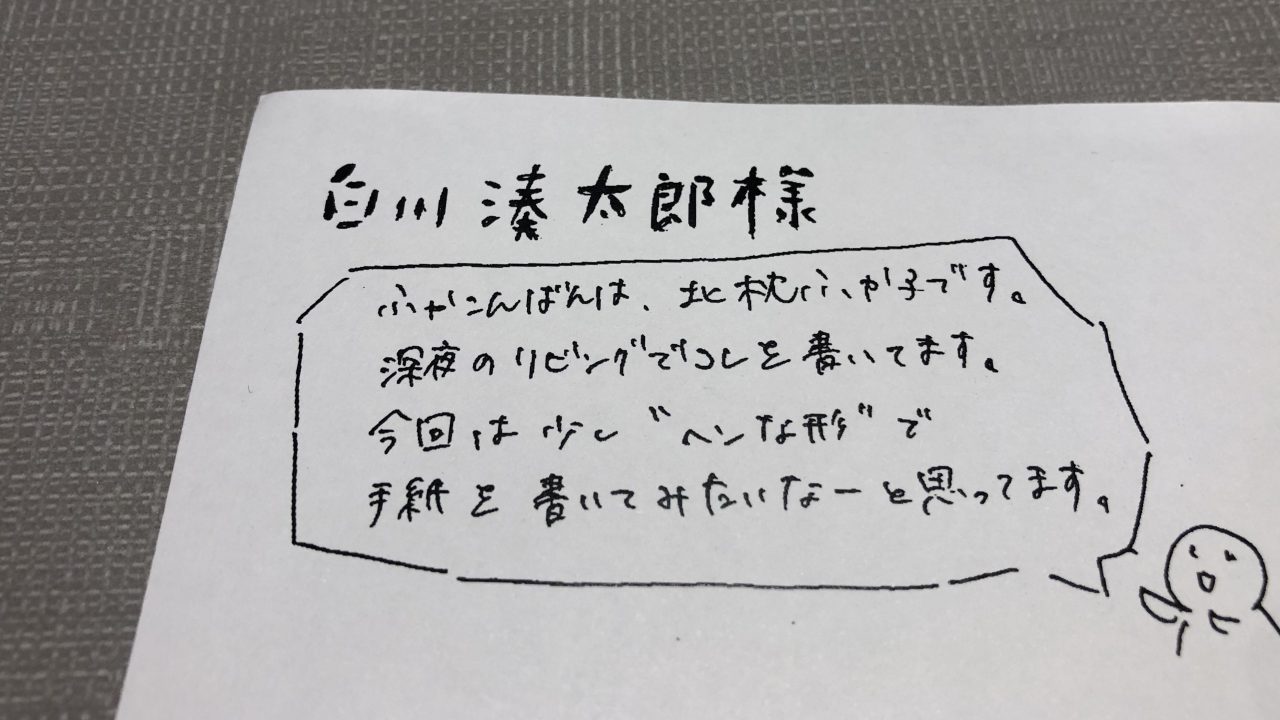 白川湊太郎様
ふかこんばんは、北枕ふか子です。
深夜のリビングでコレを書いてます。
今回は少し〝ヘンな形〟で
手紙を書いてみたいなーと思ってます。